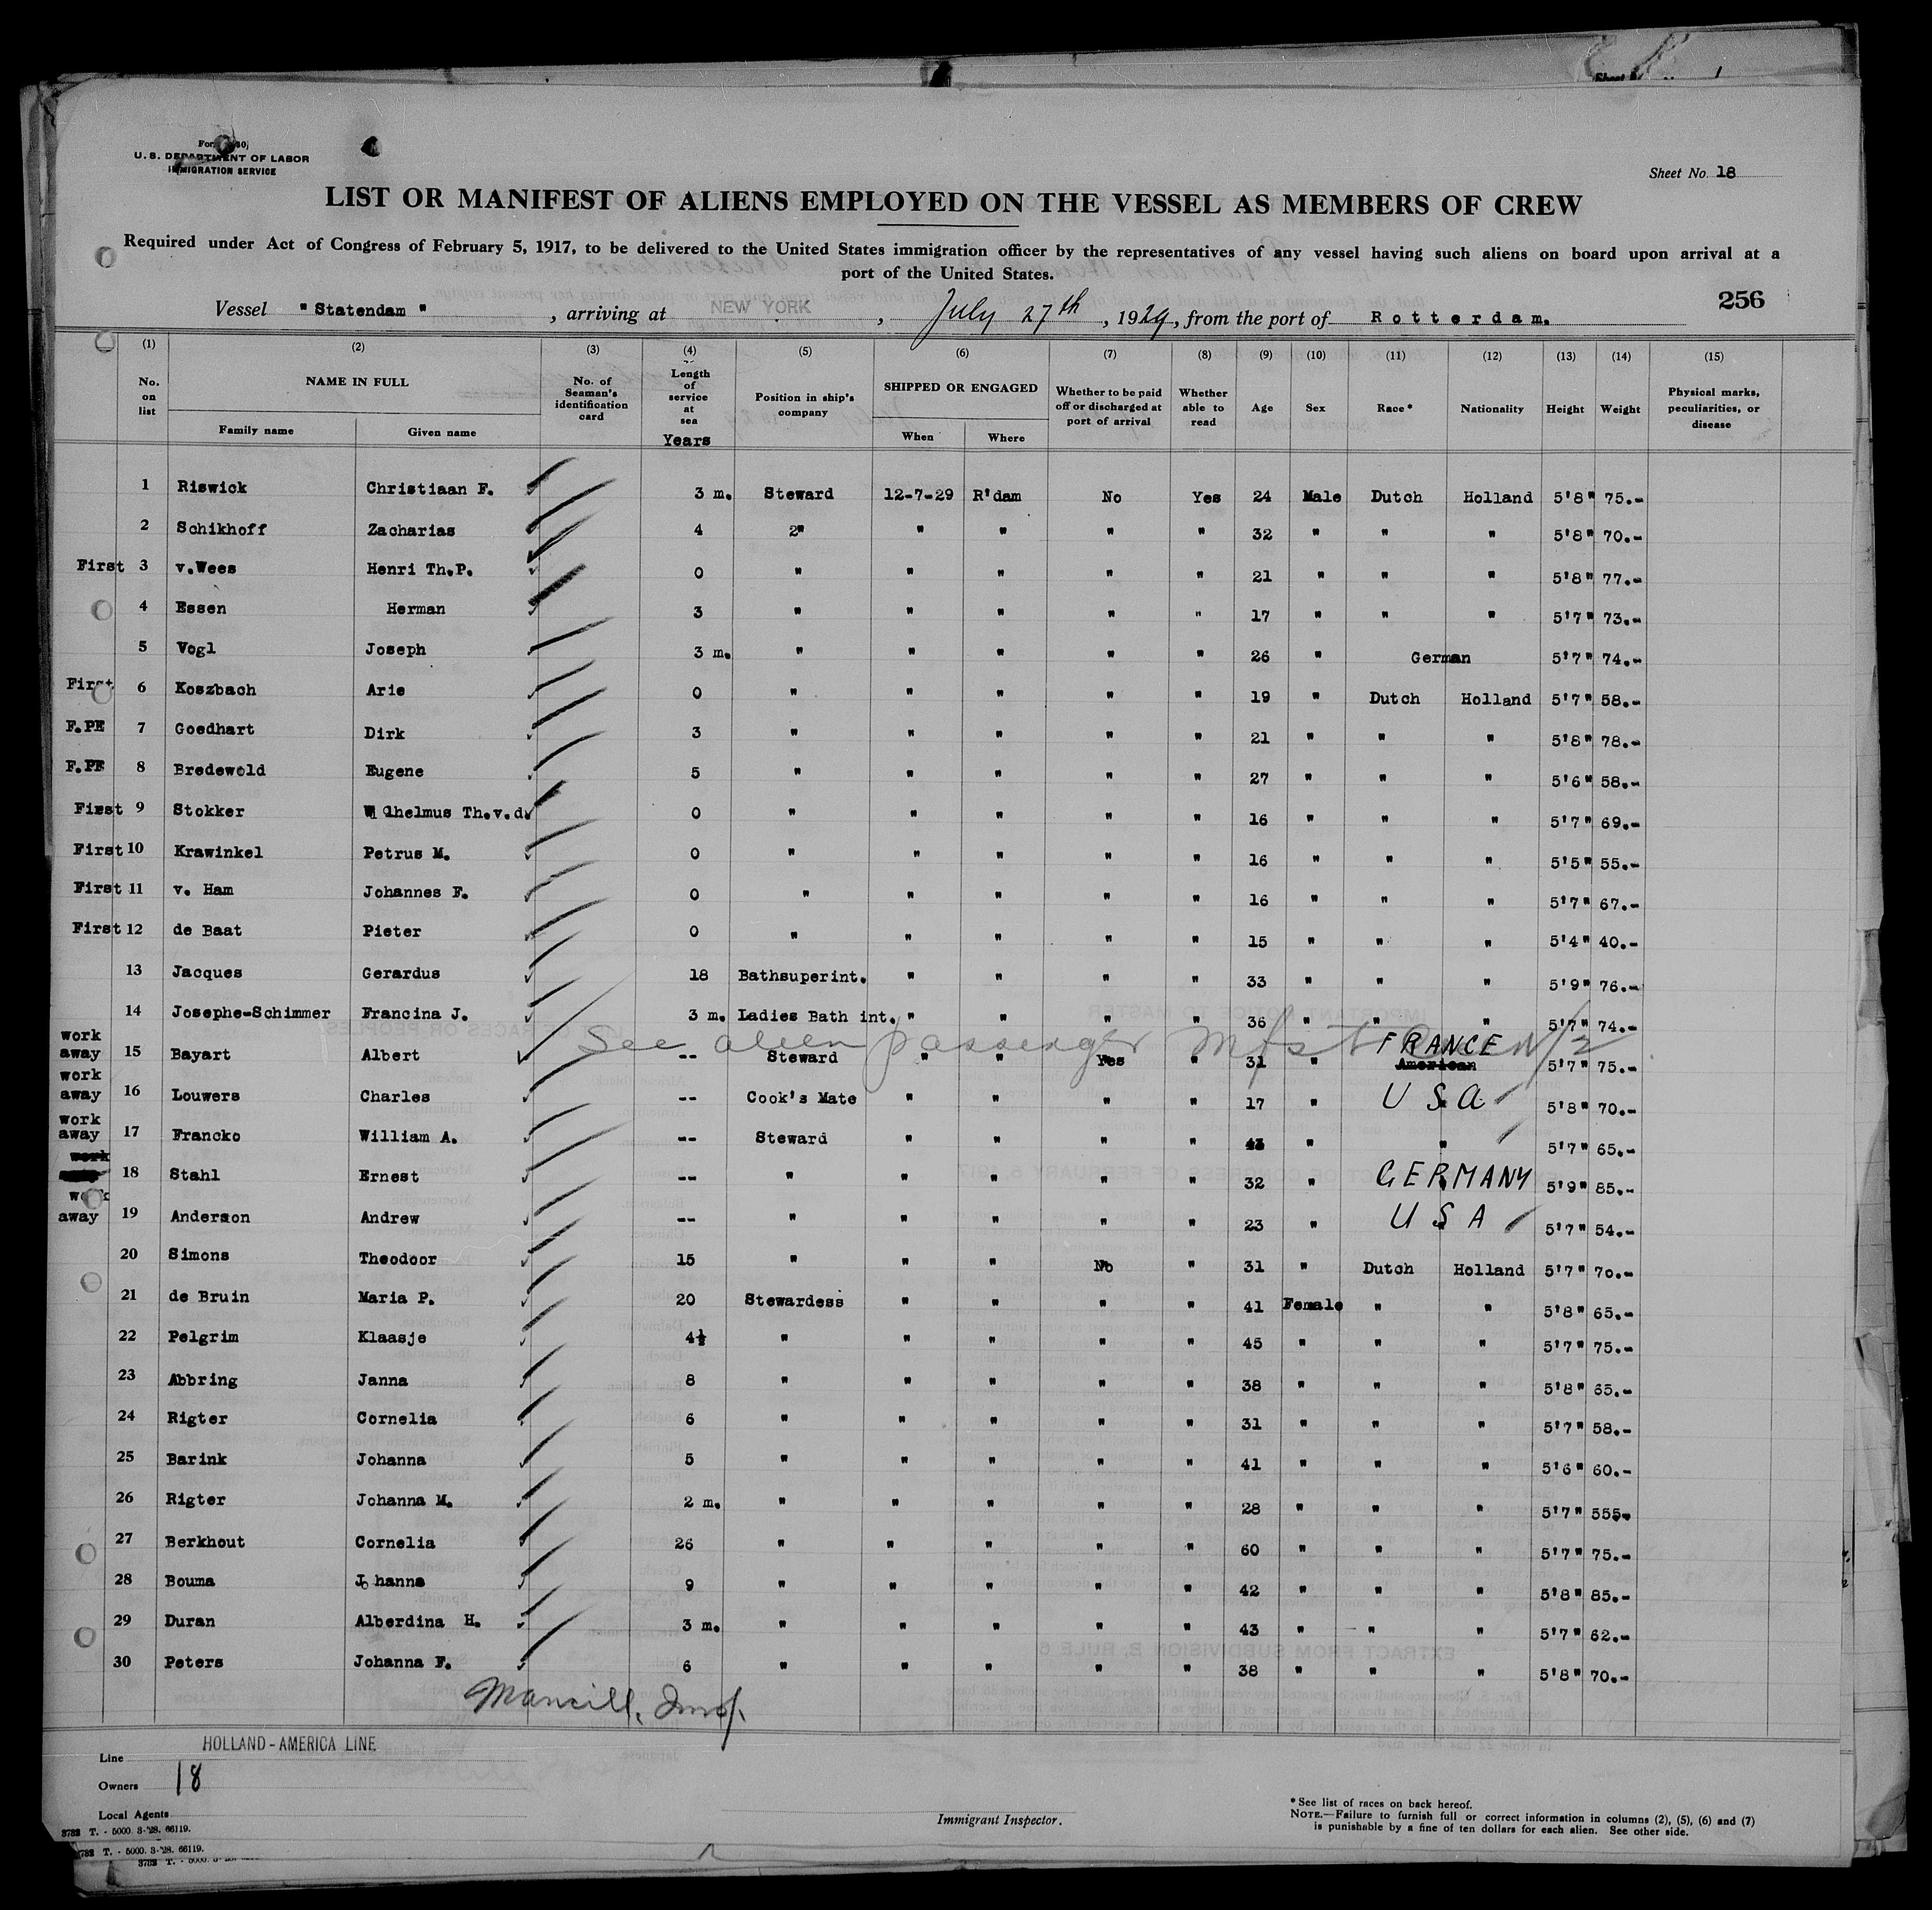 U.S. DEPARTMENT OF LABOR
IMMIGRATION SERVICE
Sheet No. 18
LIST OR MANIFEST OF ALIENS EMPLOYED ON THE VESSEL AS MEMBERS OF CREW
Required under Act of Congress of February 5, 1917, to be delivered to the United States immigration officer by the representatives of any vessel having such aliens on board upon arrival at a
port of the United States.
256
Vessel "Statendam", arriving at NEW YORK, July 27th, 1929, from the port of Rotterdam.
(1) (2) (3) (4) (5) (6) (7) (8) (9) (10) (11) (12) (13) (14) (15)
No. on list NAME IN FULL Family name Given name No. of Seaman's identification card Length of service at sea Years Position in ship's company SHIPPED OR ENGAGED When Where Whether to be paid off or discharged at port of arrival Whether able to read Age Sex Race* Nationality Height Weight Physical marks, peculiarities, or disease
1 Riswick Christiaan F. 3 m. Steward 12-7-29 R'dam No Yes 24 Male Dutch Holland 5'8" 75.-
2 Schikhoff Zacharias 4 2" " " " " 32 " " " 5'8" 70.-
First 3 v.Wees Henri Th.P. 0 " " " " " 21 " " " 5'8" 77.-
4 Essen Herman 3 " " " " " 17 " " " 5'7" 73.-
5 Vogl Joseph 3 m. " " " " " 26 " German 5'7" 74.-
First 6 Koszbach Arie 0 " " " " " 19 " Dutch Holland 5'7" 58.-
F.PE 7 Goedhart Dirk 3 " " " " " 21 " " " 5'8" 78.-
F.PE 8 Bredewold Eugene 5 " " " " " 27 " " " 5'6" 58.-
First 9 Stokker Wilhelmus Th.v.d. 0 " " " " " 16 " " " 5'7" 69.-
First 10 Krawinkel Petrus M. 0 " " " " " 16 " " " 5'5" 55.-
First 11 v. Ham Johannes F. 0 " " " " " 16 " " " 5'7" 67.-
First 12 de Baat Pieter 0 " " " " " 15 " " " 5'4" 40.-
13 Jacques Gerardus 18 Bathsuperint. " " " " 33 " " " 5'9" 76.-
14 Josephe-Schimmer Francina J. 3 m. Ladies Bath int. " " " " 36 " " " 5'7" 74.-
See alien passenger Mfst
work away 15 Bayart Albert -- Steward " " Yes " 31 " FRANCE American 5'7" 75.-
work away 16 Louwers Charles -- Cook's Mate " " " " 17 " USA 5'8" 70.-
work away 17 Francko William A. -- Steward " " " " 43 " " 5'7" 65.-
work 18 Stahl Ernest -- " " " " " 32 " GERMANY 5'9" 85.-
work away 19 Anderson Andrew -- " " " " " 23 " USA 5'7" 54.-
20 Simons Theodoor 15 " " " No " 31 " Dutch Holland 5'7" 70.-
21 de Bruin Maria P. 20 Stewardess " " " " 41 Female " " 5'8" 65.-
22 Pelgrim Klaasje 4½ " " " " " 45 " " " 5'7" 75.-
23 Abbring Janna 8 " " " " " 38 " " " 5'8" 65.-
24 Rigter Cornelia 6 " " " " " 31 " " " 5'7" 58.-
25 Barink Johanna 5 " " " " " 41 " " " 5'6" 60.-
26 Rigter Johanna M. 2 m. " " " " " 28 " " " 5'7" 555.-
27 Berkhout Cornelia 26 " " " " " 60 " " " 5'7" 75.-
28 Bouma Johanna 9 " " " " " 42 " " " 5'8" 85.-
29 Duran Alberdina H. 3 m. " " " " " 43 " " " 5'7" 62.-
30 Peters Johanna F. 6 " " " " " 38 " " " 5'8" 70.-
Line HOLLAND-AMERICA LINE
Owners 18
Local Agents
Immigrant Inspector.
*See list of races on back hereof.
NOTE.—Failure to furnish full or correct information in columns (2), (5), (6) and (7)
is punishable by a fine of ten dollars for each alien. See other side.
3782 T. - 5000. 3-'28. 66119.
3782 T. - 5000. 3-'28. 66119.